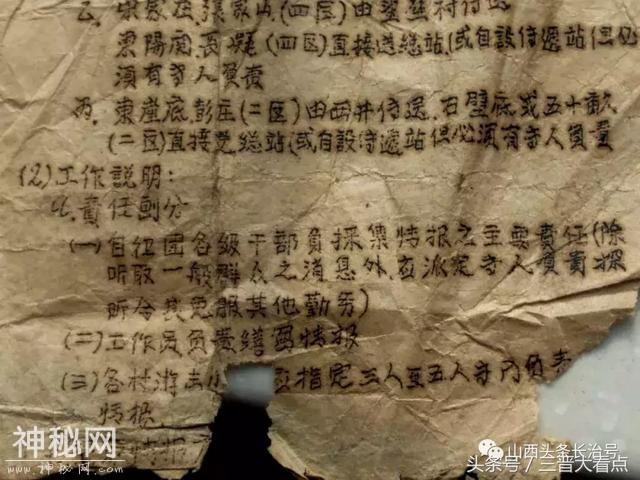 乙.東家莊張家山,(四区)由望壁村传递
東陽關,長寧,(四区)直接送總站,(或自設传遞站但必
須有专人負責
丙.東崖底,彭庄(二区)由西井传递,石壁底或五十畝
(二区)直接送總站(或自設传遞站但必須有专人負責
(2)工作說明:
甲.責任劃分
(一)自衛團各级干部負採集情报之主要責任(除
听取一般群众之消息外,应派定专人負責探
听令其免服其他勤务)
(二)工作員負責繕寫情报
(三)各村游击小 应指定三人至五人专门負責
情报
情报
神秘网
www.神秘网.com
山西头条长治号
头条号/三晋大看点